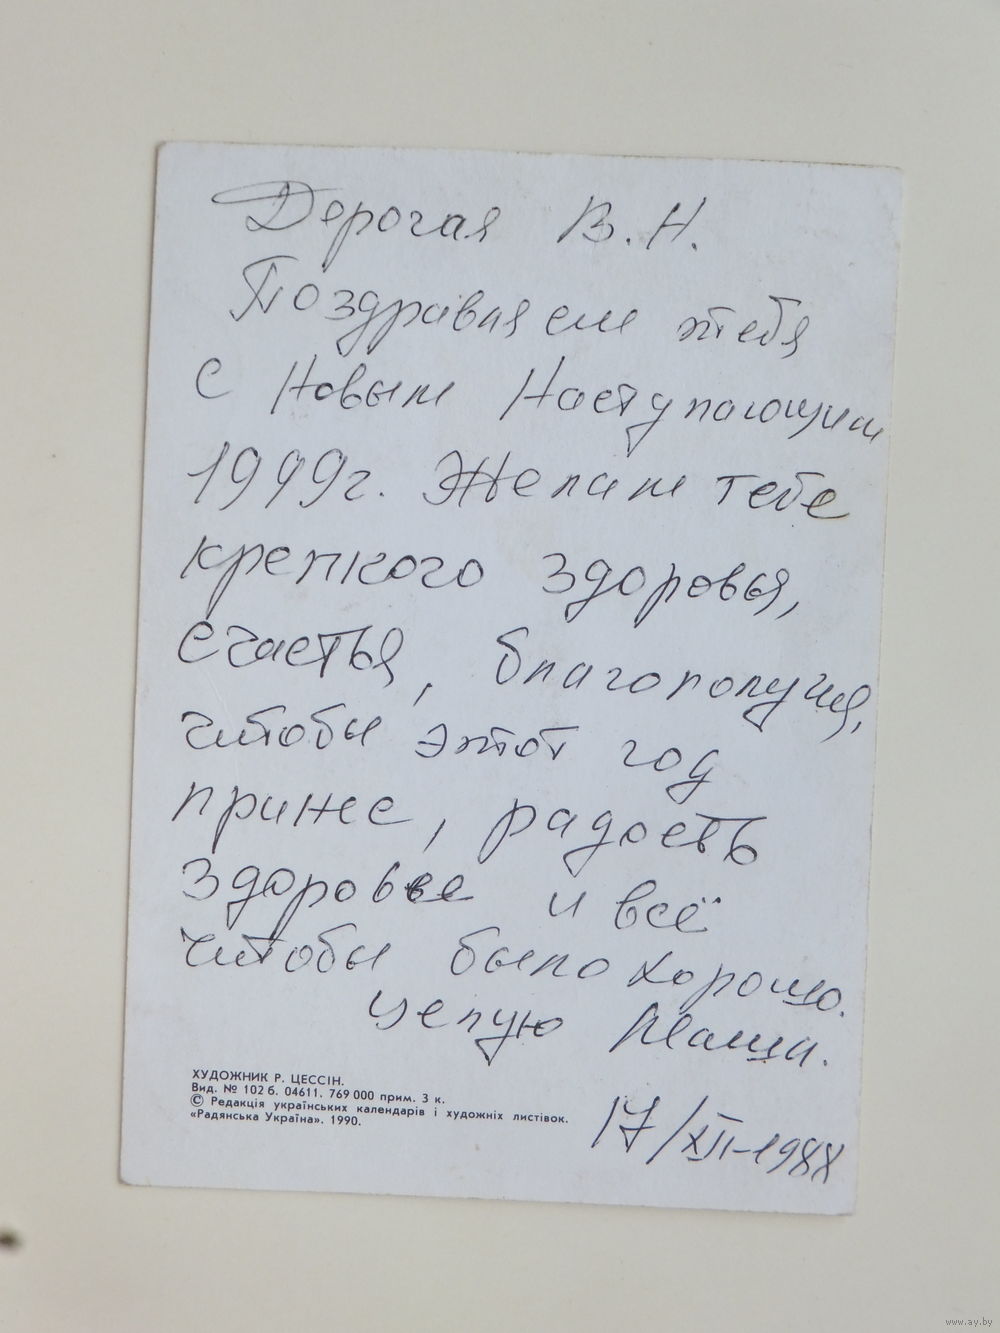 Дорогая В. Н.
Поздравляем тебя
с Новым Наступающим
1999г. Желаем тебе
крепкого здоровья,
счастья, благополучия,
чтобы этот год
принес, радость
здоровье и всё
чтобы было хорошо.
целую Маша.
17/XII-1988
ХУДОЖНИК Р. ЦЕССІН.
Вид. № 102 б. 04611. 769 000 прим. 3 к.
© Редакція українських календарів і художніх листівок.
«Радянська Україна». 1990.
www.ay.by